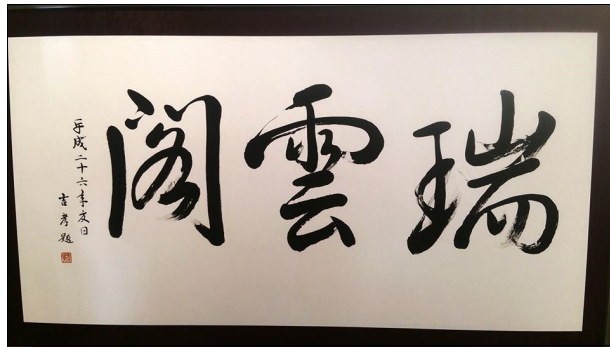 瑞雲閣
平成二十六年夏日
吉孝題